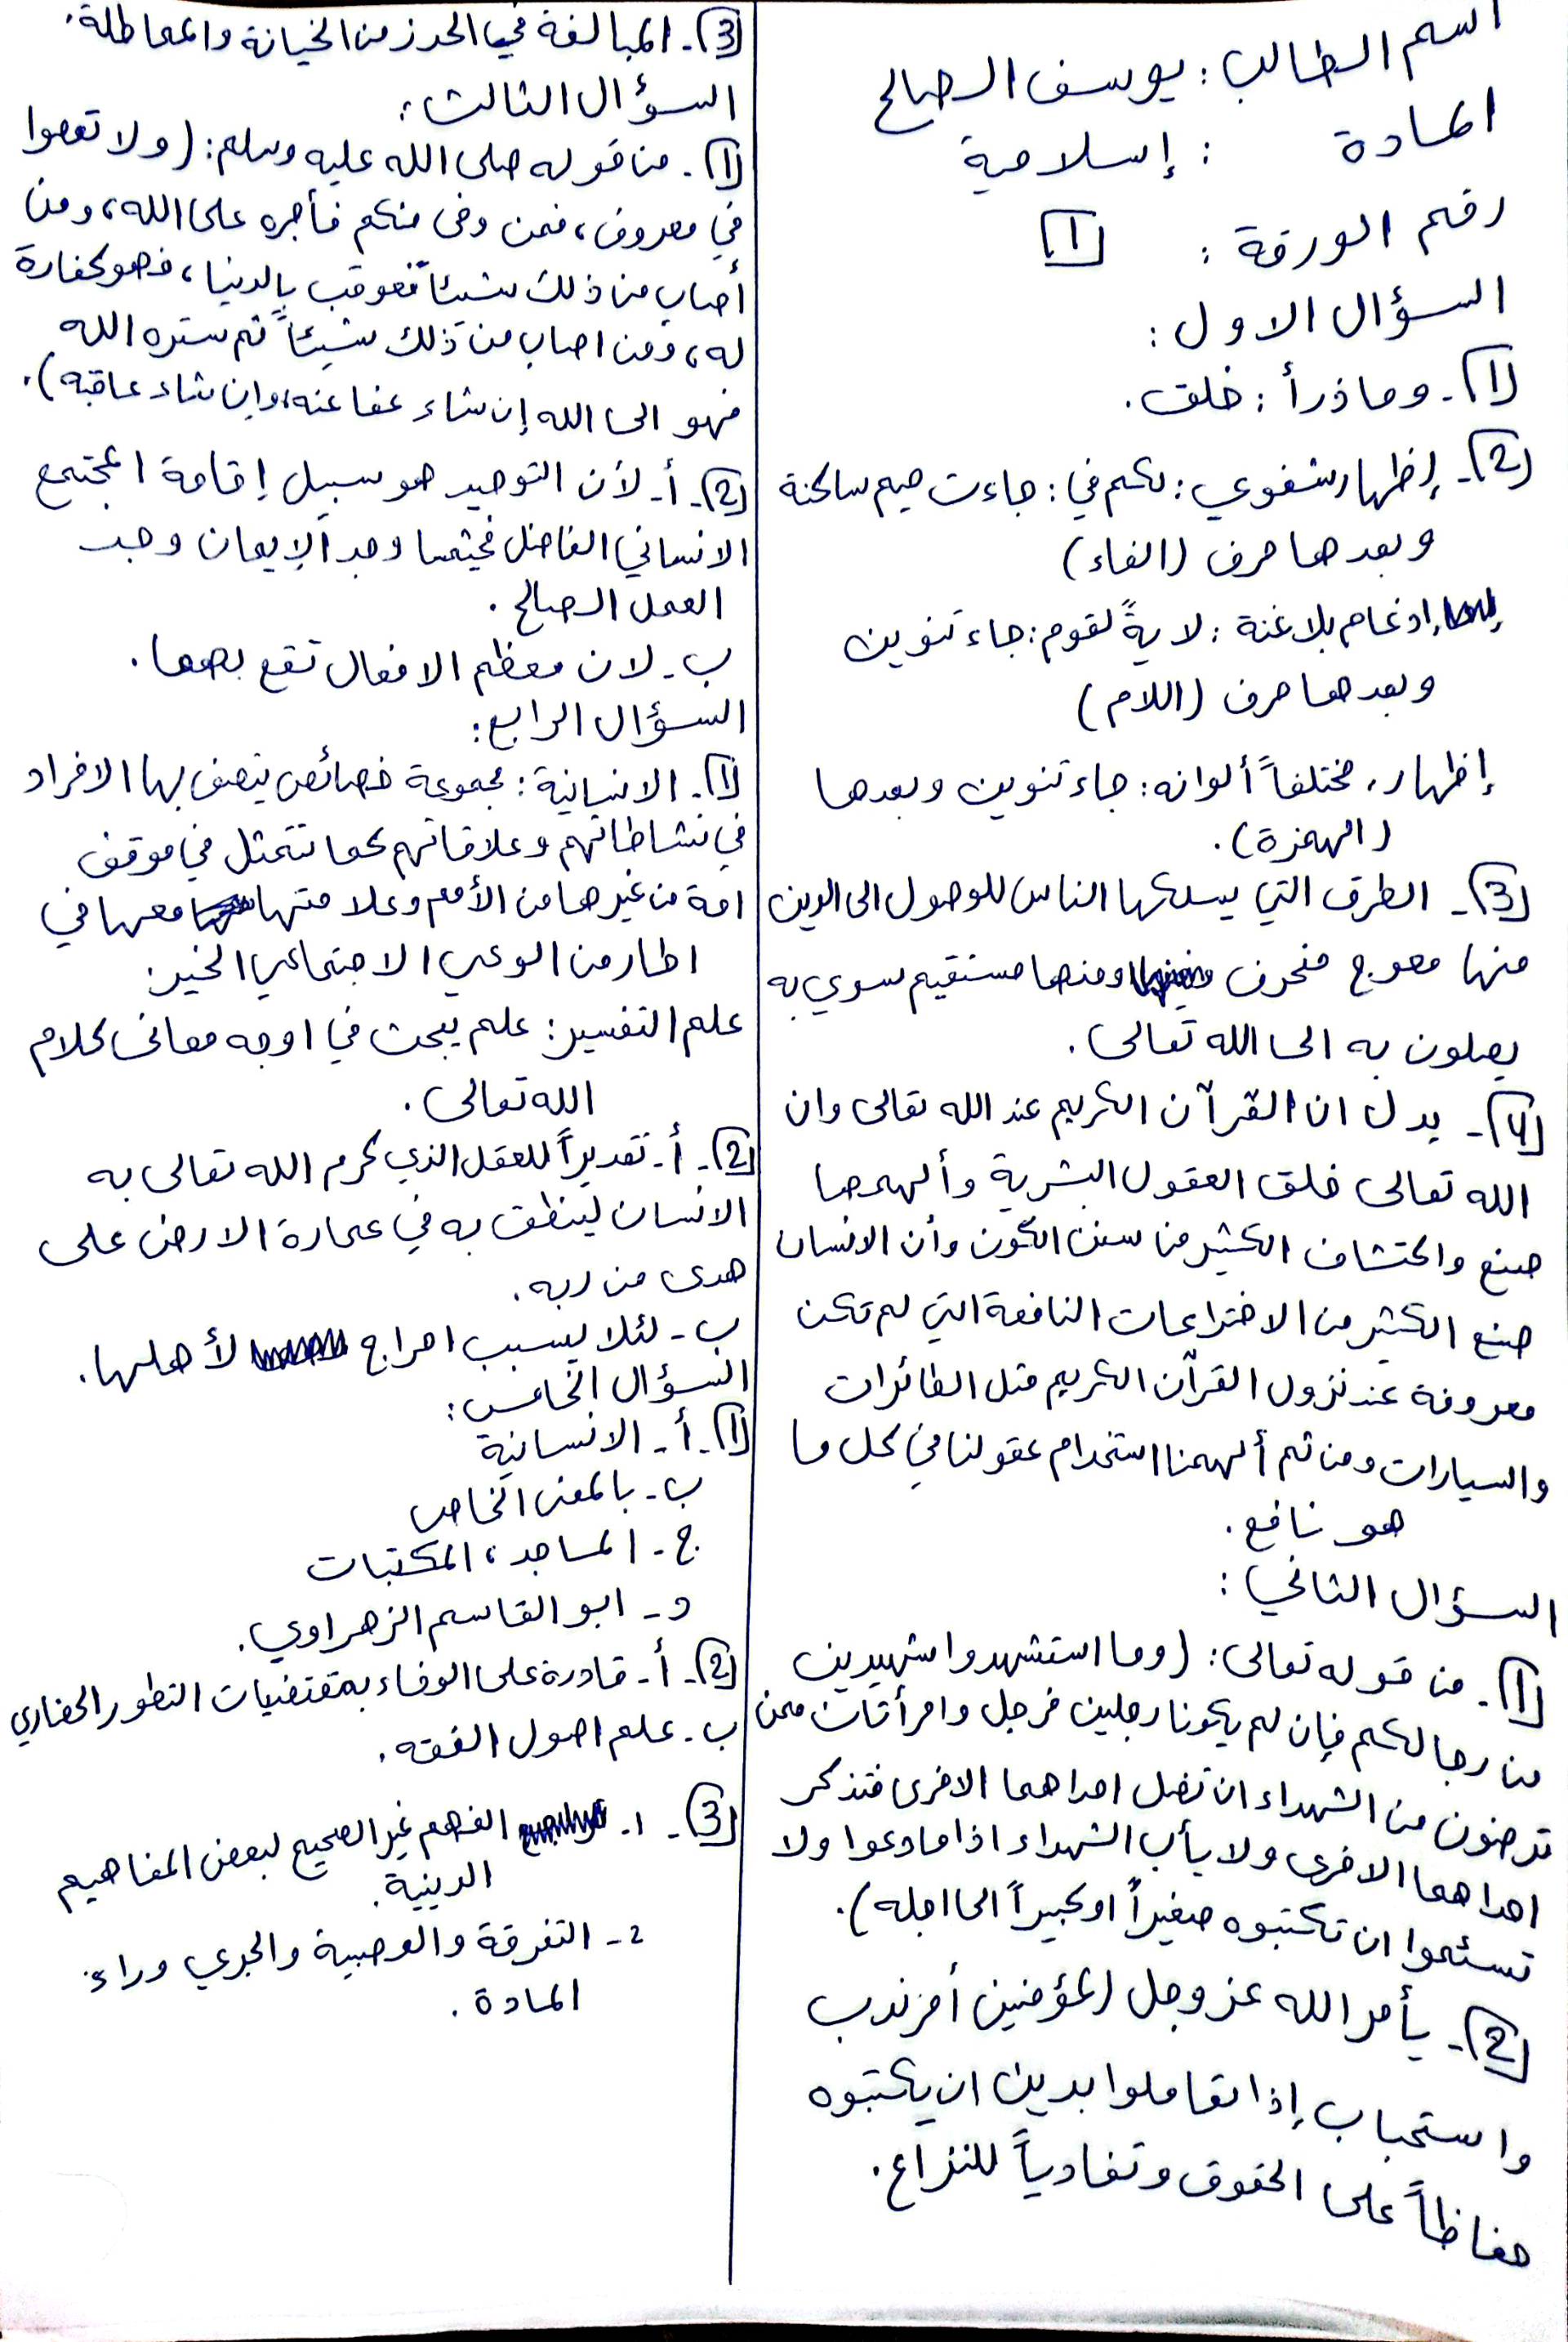 اسم الطالب : يوسف الصالح
المادة : إسلامية
رقم الورقة : 1
السؤال الاول :
1- وما ذرأ : خلق .
2- إظهار شفوي : لكم في : جاءت ميم ساكنة
وبعدها حرف (الفاء)
إدغام بلاغنة : لايةً لقوم : جاء تنوين
وبعدها حرف (اللام)
إظهار ، مختلفاً ألوانه : جاء تنوين وبعدها
(الهمزة) .
3- الطرق التي يسلكها الناس للوصول الى الدين
منها معوج منحرف ومنها مستقيم سوي به
يصلون به الى الله تعالى .
4- يدل ان القرآن الكريم عند الله تعالى وان
الله تعالى خلق العقول البشرية وألهمها
صنع واكتشاف الكثير من سنن الكون وأن الانسان
صنع الكثير من الاختراعات النافعة التي لم تكن
معروفة عند نزول القرآن الكريم مثل الطائرات
والسيارات ومن ثم ألهمنا استخدام عقولنا في كل ما
هو نافع .
السؤال الثاني :
1- من قوله تعالى : (وما استشهدوا شهيدين
من رجالكم فإن لم يكونا رجلين فرجل وامرأتان ممن
ترضون من الشهداء ان تضل احداهما الاخرى فتذكر
احداهما الاخرى ولا يأب الشهداء اذا ما دعوا ولا
تسئموا ان تكتبوه صغيراً او كبيراً الى اجله) .
2- يأمر الله عز وجل المؤمنين أمر ندب
واستحباب إذا تعاملوا بدين ان يكتبوه
حفاظاً على الحقوق وتفادياً للنزاع .
3- المبالغة في الحرز من الخيانة والمماطلة .
السؤال الثالث :
1- من قوله صلى الله عليه وسلم : (ولا تعصوا
في معروف ، فمن وفى منكم فأجره على الله ، ومن
أصاب من ذلك شيئاً فعوقب بالدنيا ، فهو كفارة
له ، ومن اصاب من ذلك شيئاً ثم ستره الله
فهو الى الله إن شاء عفا عنه ، وإن شاء عاقبه) .
2- أ- لأن التوحيد هو سبيل إقامة المجتمع
الانساني الفاضل فحيثما وجد الإيمان وجد
العمل الصالح .
ب- لان معظم الافعال تقع بهما .
السؤال الرابع :
1- الانسانية : مجموعة خصائص يتصف بها الافراد
في نشاطاتهم وعلاقاتهم كما تتمثل في موقف
امة من غيرها من الأمم وعلاقتها معها في
اطار من الوعي الاجتماعي الخير .
علم التفسير : علم يبحث في اوجه معاني كلام
الله تعالى .
2- أ- تقديراً للعقل الذي كرم الله تعالى به
الانسان لينطق به في عمارة الارض على
هدى من ربه .
ب- لئلا يسبب احراج لأهلها .
السؤال الخامس :
1- أ- الانسانية
ب- بالمعنى الخاص
ج- المساجد ، المكتبات
د- ابو القاسم الزهراوي .
2- أ- قادرة على الوفاء بمقتضيات التطور الحضاري
ب- علم اصول الفقه .
3- 1- الفهم غير الصحيح لبعض المفاهيم
الدينية .
2- التفرقة والعصبية والجري وراء
المادة .